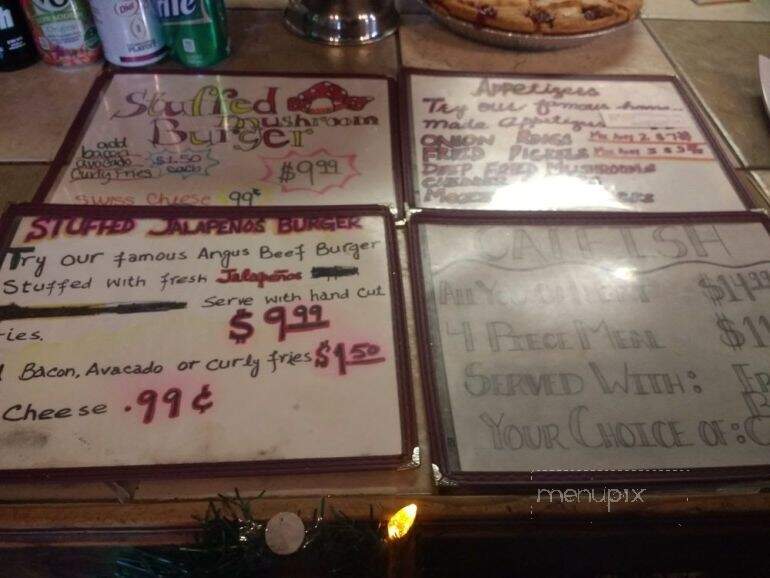 Diet
Stuffed
mushroom
Burger
add
bacon
avocado $1.50
Curly Fries each
$9.99
Swiss Cheese 99¢
Appetizers
Try our famous home
made Appetizers
ONION RINGS
FRIED PICKLES
DEEP FRIED MUSHROOMS
STUFFED JALAPENOS BURGER
Try our famous Angus Beef Burger
Stuffed with fresh Jalapeños
Serve with hand cut
ries.
$9.99
Bacon, Avacado or curly fries $1.50
Cheese .99¢
CATFISH
$14.99
4 PIECE MEAL $11
SERVED WITH: Fr
YOUR CHOICE OF: C
menupix